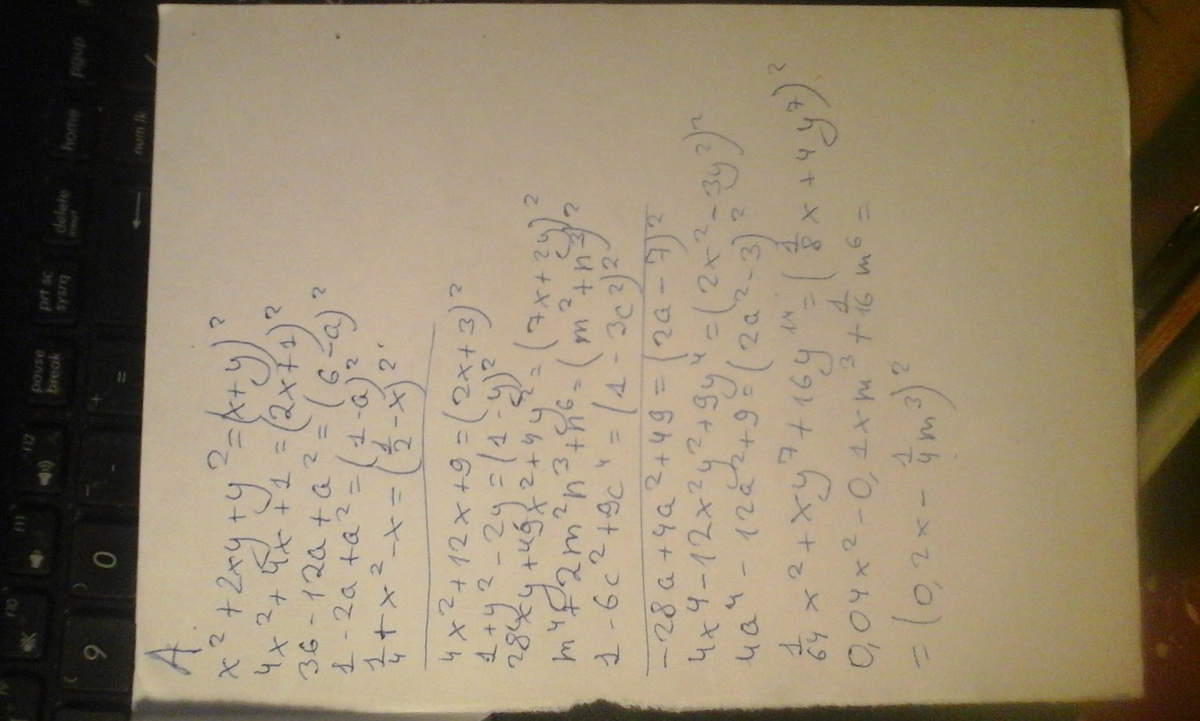 A
x² + 2xy + y² = (x+y)²
4x² + 4x + 1 = (2x+1)²
36 - 12a + a² = (6-a)²
1 - 2a + a² = (1-a)²
1/4 + x² - x = (1/2 - x)²
4x² + 12x + 9 = (2x+3)²
1 + y² - 2y = (1-y)²
28xy + 49x² + 4y² = (7x+2y)²
m⁴ + 2m²n³ + n⁶ = (m² + n³)²
1 - 6c² + 9c⁴ = (1 - 3c²)²
-28a + 4a² + 49 = (2a - 7)²
4x⁴ - 12x²y² + 9y⁴ = (2x² - 3y²)²
4a⁴ - 12a² + 9 = (2a² - 3)²
1/64 x² + xy⁷ + 16y¹⁴ = (1/8 x + 4y⁷)²
0,04x² - 0,1xm³ + 1/16 m⁶ =
= (0,2x - 1/4 m³)²
pause break
prt sc sysrq
delete
home
pgup
num lk
f10
f11
f12
9
0
-
+ =